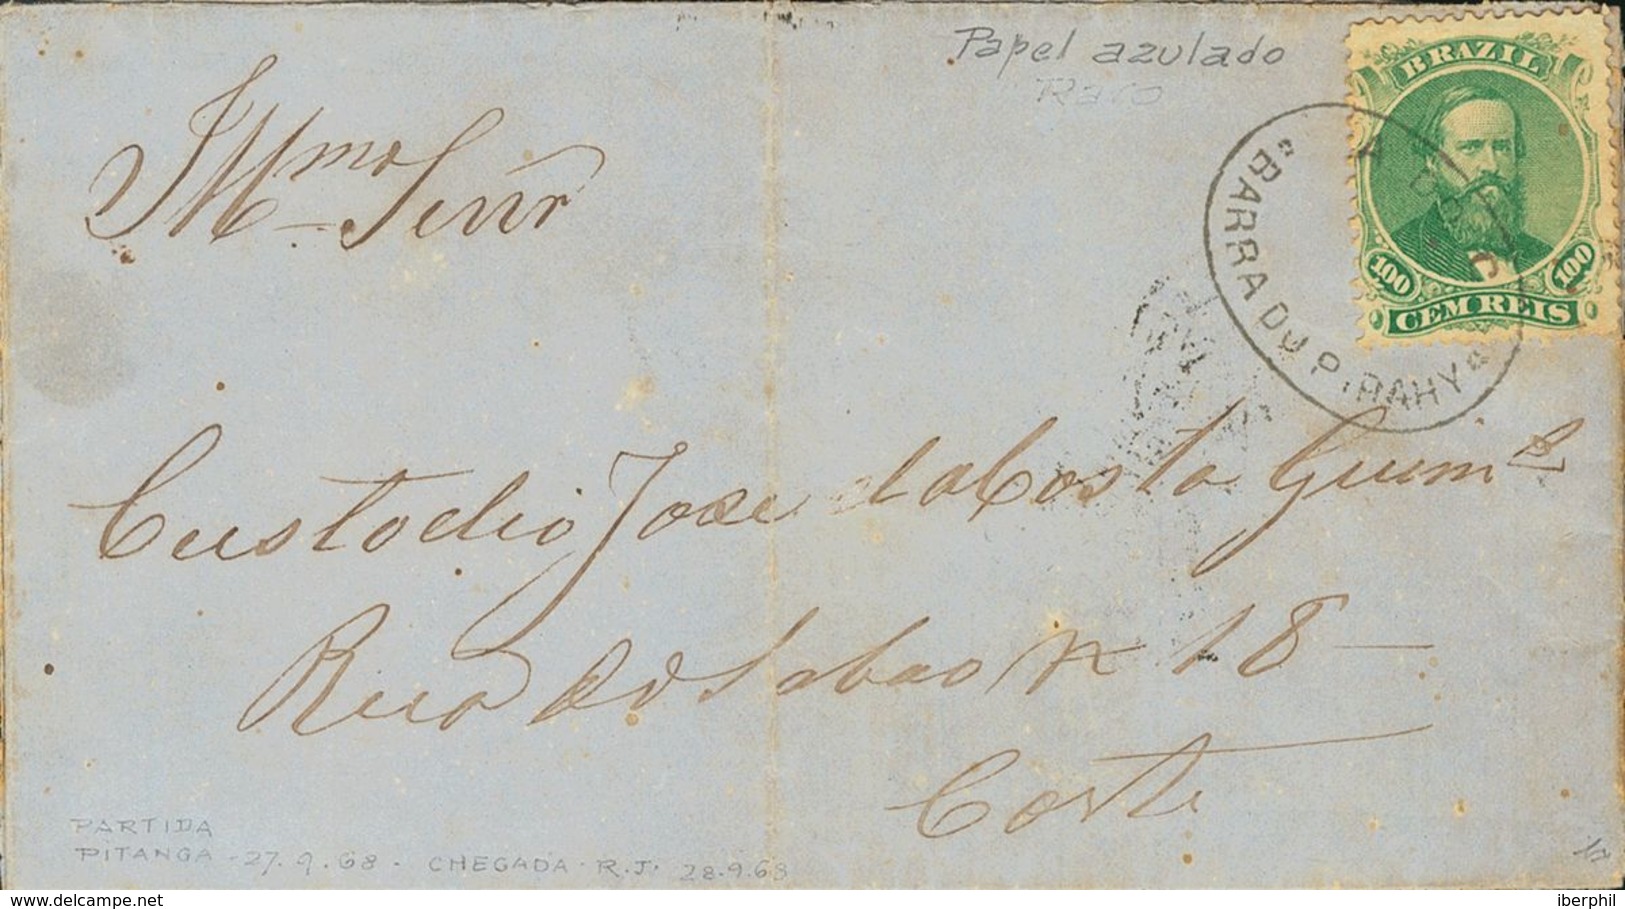 Papel azulado
Raro
BRAZIL
100 100
CEM REIS
"BARRA DU PIRAHY"
Illmo Senr
Custodio Jose da Costa Guimes
Rua do Sabao n 18 —
Corte
PARTIDA
PITANGA - 27.9.68 - CHEGADA - R.J. 28.9.68
iberphil